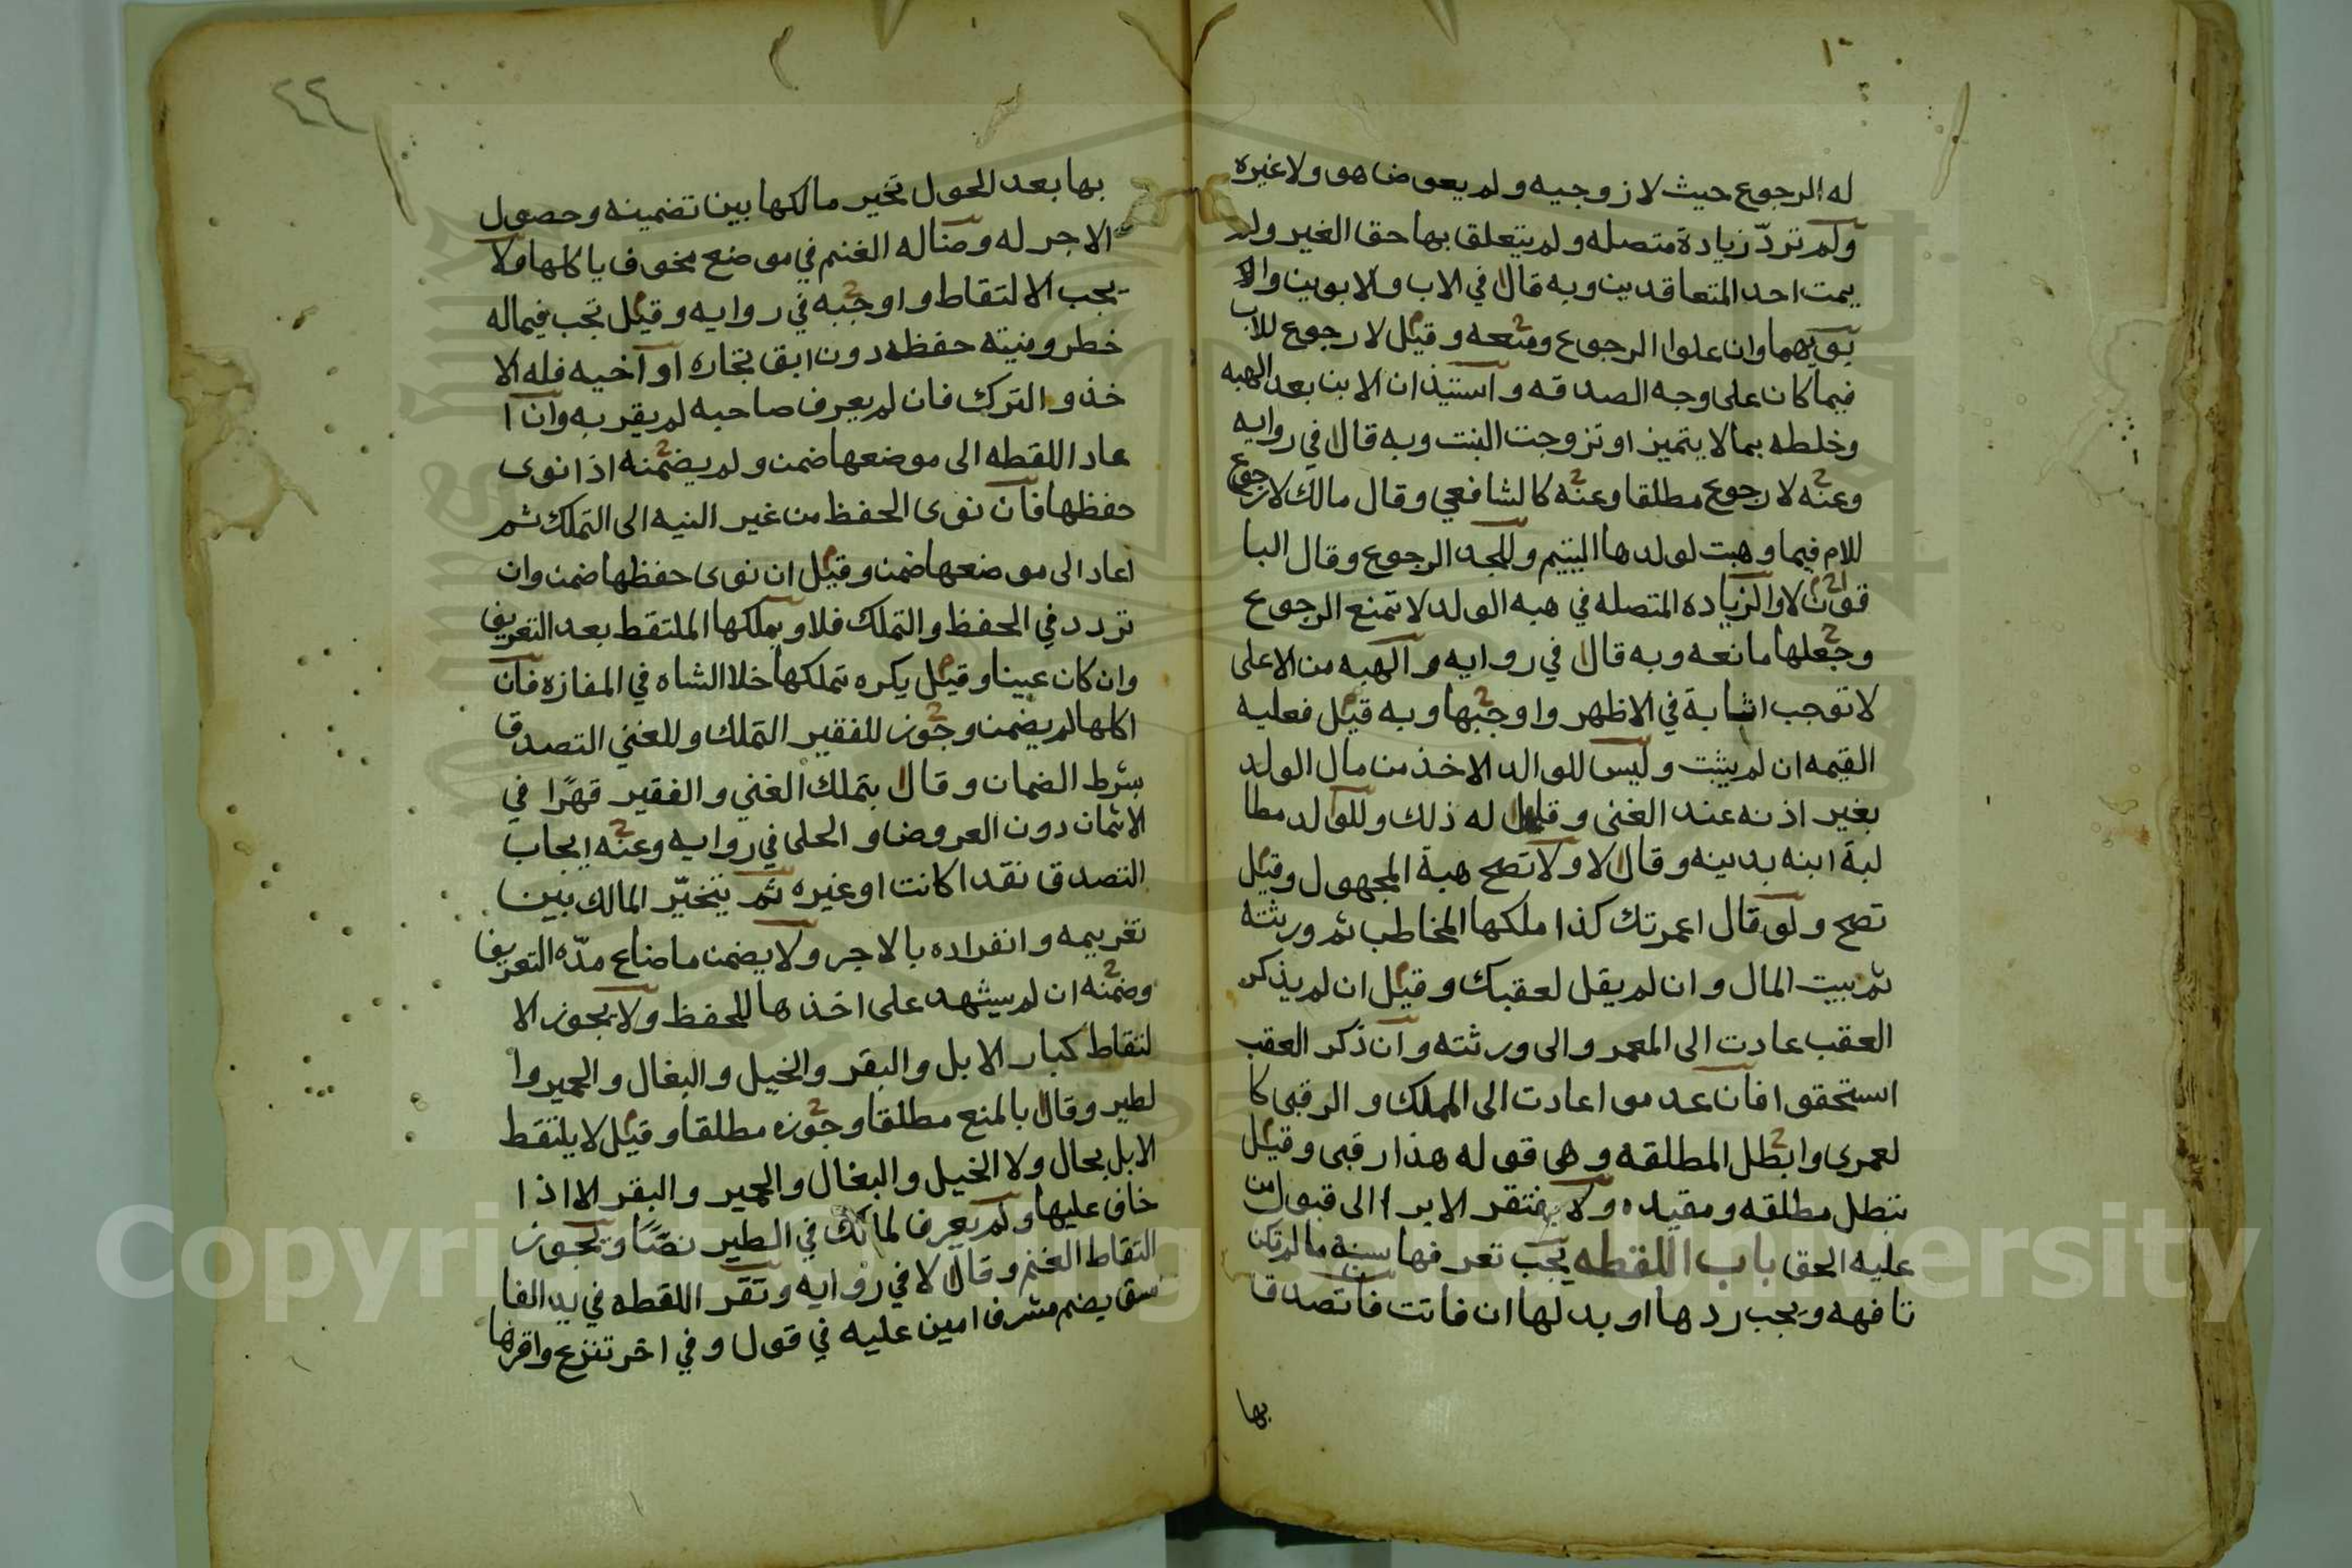 له الرجوع حيث لا زوجيه ولم يعوضا هو ولا غيره
ولم تردّ زيادة متصله ولم يتعلق بها حق الغير ولم
يمت احد المتعاقدين وبه قال في الاب والابوين والا
بويهما وان علوا الرجوع ومنعه وقيل لا رجوع للاب
فيما كان على وجه الصدقه واستيذان الابن بعد الهبه
وخلطه بما لا يتميز او تزوجت البنت وبه قال في روايه
وعنه لا رجوع مطلقا وعنه كالشافعي وقال مالك لا رجوع
للام فيما وهبت لولدها اليتيم وللجد الرجوع وقال البا
قون لا والزياده المتصله في هبه الولد لا تمنع الرجوع
وجعلها مانعه وبه قال في روايه والهبه من الاعلى
لا توجب اثابة في الاظهر واوجبها وبه قيل فعليه
القيمه ان لم يثبت وليس للوالد الاخذ من مال الولد
بغير اذنه عند الغنى وقال له ذلك وللولد مطا
لبة ابنه بدينه وقال لا ولا تصح هبة المجهول وقيل
تصح ولو قال اعمرتك كذا ملكها المخاطب ثم ورثته
ثم بيت المال وان لم يقل لعقبك وقيل ان لم يذكر
العقب عادت الى المعمر والى ورثته وان ذكر العقب
استحقوا فان عدموا عادت الى المملك والرقبى كا
لعمرى وابطل المطلقه وهى قوله هذا رقبى وقيل
تبطل مطلقه ومقيده ولا يفتقر الابرا الى قبول من
عليه الحق باب اللقطه يجب تعرفها سنه ما لم تكن
تافهه ويجب ردها او بدلها ان فاتت فان تصدق
بها
٢٢
بها بعد الحول تخير مالكها بين تضمينه وحصول
الاجر له وضاله الغنم في موضع مخوف ياكلها ولا
يجب الالتقاط واوجبه في روايه وقيل تجب فيما له
خطر ونيته حفظه دون ابق بجاره او اخيه فله الا
خذ والترك فان لم يعرف صاحبه لم يقر به وان ا
عاد اللقطه الى موضعها ضمن ولم يضمنه اذا نوى
حفظها فان نوى الحفظ من غير النيه الى التملك ثم
اعاد الى موضعها ضمن وقيل ان نوى حفظها ضمن وان
تردد في الحفظ والتملك فلا ويملكها الملتقط بعد التعريف
وان كان عينا وقيل يكره تملكها خلا الشاه في المفازه فان
اكلها لم يضمن وجوز للفقير التملك وللغني التصدق
بشرط الضمان وقال يتملك الغني والفقير قهرًا في
الاثمان دون العروض والحلى في روايه وعنه ايجاب
التصدق نقدا كانت او غيره ثم يتخيّر المالك بين
تغريمه وانفراده بالاجر ولا يضمن ما ضاع مدّه التعريف
وضمنه ان لم يشهد على اخذها للحفظ ولا يجوز الا
لتقاط كبار الابل والبقر والخيل والبغال والحمير وا
لطير وقال بالمنع مطلقا وجوزه مطلقا وقيل لا يلتقط
الابل بحال ولا الخيل والبغال والحمير والبقر الا اذا
خاف عليها ولم يعرف لمالك في الطير نصًا ويجوز
التقاط الغنم وقال لا في روايه وتقر اللقطه في يد الفا
سق يضم مشرف امين عليه في قول وفي اخر تنزع واقرها